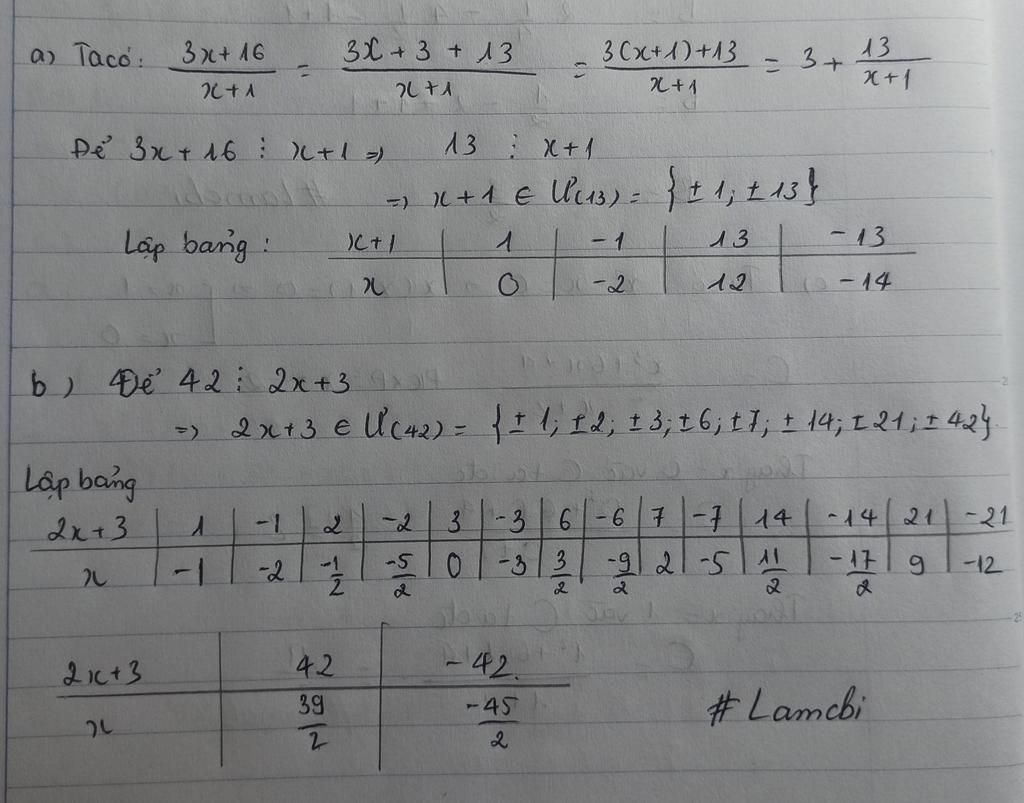 a) Ta có: \frac{3x+16}{x+1} = \frac{3x+3+13}{x+1} = \frac{3(x+1)+13}{x+1} = 3 + \frac{13}{x+1}
Để 3x+16 ⋮ x+1 => 13 ⋮ x+1
=> x+1 ∈ Ư(13) = {±1; ±13}
Lập bảng: x+1 | 1 | -1 | 13 | -13
x | 0 | -2 | 12 | -14
b) Để 42 ⋮ 2x+3
=> 2x+3 ∈ Ư(42) = {±1; ±2; ±3; ±6; ±7; ±14; ±21; ±42}
Lập bảng
2x+3 | 1 | -1 | 2 | -2 | 3 | -3 | 6 | -6 | 7 | -7 | 14 | -14 | 21 | -21
x | -1 | -2 | \frac{-1}{2} | \frac{-5}{2} | 0 | -3 | \frac{3}{2} | \frac{-9}{2} | 2 | -5 | \frac{11}{2} | \frac{-17}{2} | 9 | -12
2x+3 | 42 | -42.
x | \frac{39}{2} | \frac{-45}{2}
# Lamcbi